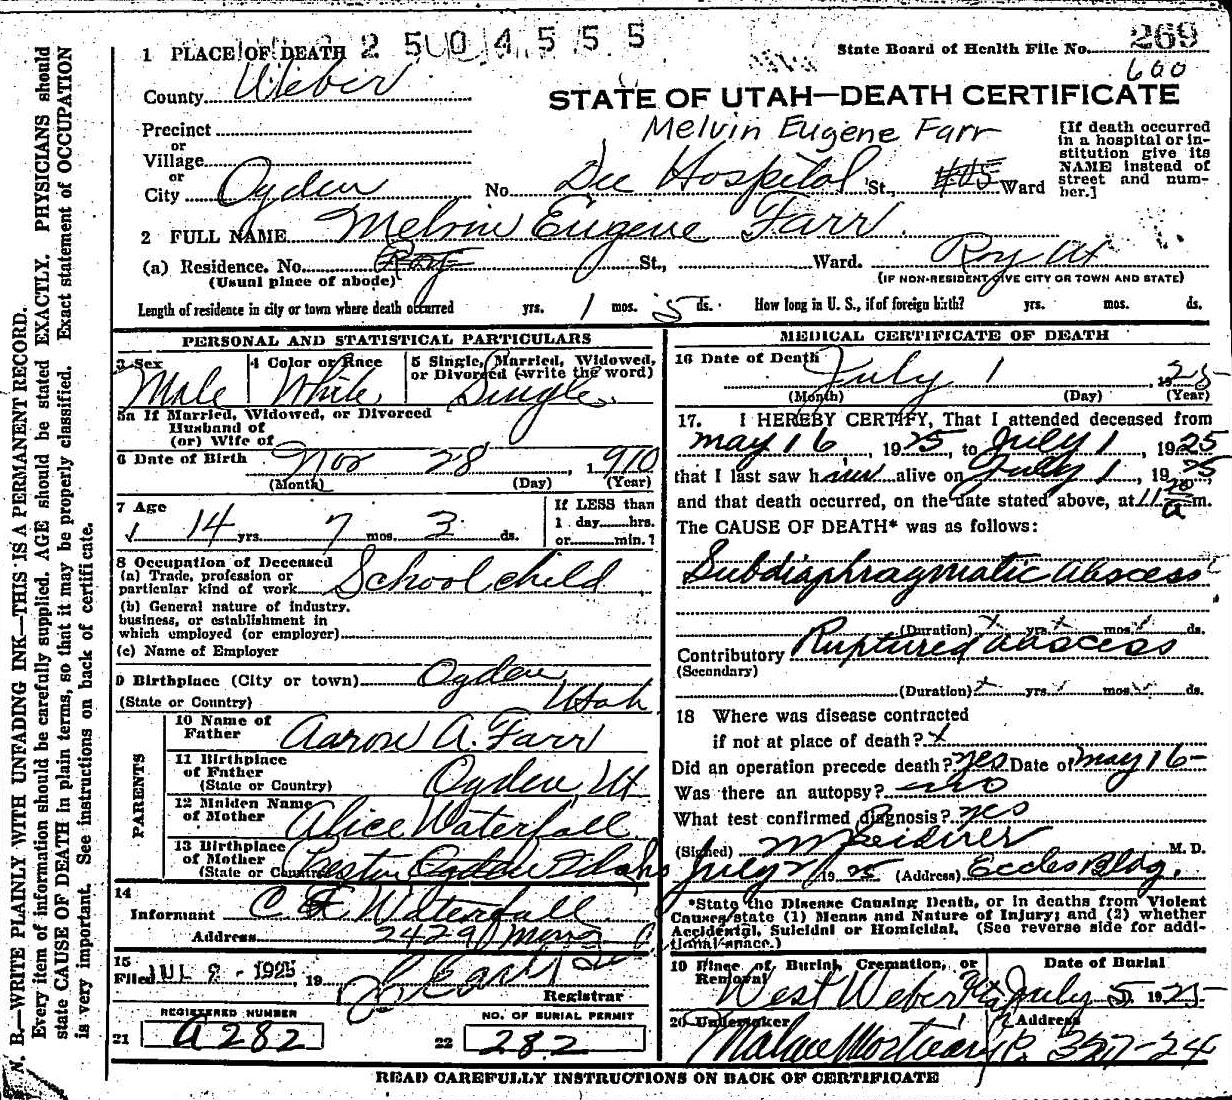 1 PLACE OF DEATH 2 5 0 4 5 5 5
State Board of Health File No. 269
600
County Weber
STATE OF UTAH—DEATH CERTIFICATE
Melvin Eugene Farr
Precinct
or
Village
or
City Ogden No. Dee Hospital St., Ward
[If death occurred in a hospital or institution give its NAME instead of street and number.]
2 FULL NAME Melvin Eugene Farr
(a) Residence. No. Roy St., Ward. Roy Ut
(Usual place of abode) (IF NON-RESIDENT GIVE CITY OR TOWN AND STATE)
Length of residence in city or town where death occurred yrs. 1 mos. 5 ds. How long in U. S., if of foreign birth? yrs. mos. ds.
PERSONAL AND STATISTICAL PARTICULARS
3 Sex 4 Color or Race 5 Single, Married, Widowed, or Divorced (write the word)
Male White Single
5a If Married, Widowed, or Divorced
Husband of
(or) Wife of
6 Date of Birth Nov 28, 1910
(Month) (Day) (Year)
7 Age 14 yrs. 7 mos. 3 ds.
If LESS than
1 day hrs.
or min.?
8 Occupation of Deceased
(a) Trade, profession or
particular kind of work School child
(b) General nature of industry,
business, or establishment in
which employed (or employer)
(c) Name of Employer
9 Birthplace (City or town) Ogden
(State or Country) Utah
PARENTS
10 Name of
Father Aaron A. Farr
11 Birthplace
of Father Ogden, Ut
(State or Country)
12 Maiden Name
of Mother Alice Waterfall
13 Birthplace
of Mother
(State or Country) Preston Ogden Idaho
14
Informant Waterfall
Address 2429
15
Filed JUL 2 - 1925, 19
Registrar
REGISTERED NUMBER
21 a282
NO. OF BURIAL PERMIT
22 282
MEDICAL CERTIFICATE OF DEATH
16 Date of Death July 1, 1925
(Month) (Day) (Year)
17. I HEREBY CERTIFY, That I attended deceased from
May 16, 1925, to July 1, 1925
that I last saw him alive on July 1, 1925
and that death occurred, on the date stated above, at 11 20 a m.
The CAUSE OF DEATH* was as follows:
Subdiaphragmatic abscess
(Duration) yrs. mos. ds.
Contributory Ruptured abscess
(Secondary)
(Duration) yrs. mos. ds.
18 Where was disease contracted
if not at place of death? x
Did an operation precede death? yes Date of May 16-
Was there an autopsy? no
What test confirmed diagnosis? yes
(Signed) M. D.
July 2, 1925 (Address) Eccles Bldg.
*State the Disease Causing Death, or in deaths from Violent
Causes, state (1) Means and Nature of Injury; and (2) whether
Accidental, Suicidal or Homicidal. (See reverse side for addi-
tional space.)
19 Place of Burial, Cremation, or Date of Burial
Removal
West Weber July 5, 1925
20 Undertaker Address
Mortuary 327-24
READ CAREFULLY INSTRUCTIONS ON BACK OF CERTIFICATE
N. B.—WRITE PLAINLY WITH UNFADING INK—THIS IS A PERMANENT RECORD.
Every item of information should be carefully supplied. AGE should be stated EXACTLY. PHYSICIANS should
state CAUSE OF DEATH in plain terms, so that it may be properly classified. Exact statement of OCCUPATION
is very important. See instructions on back of certificate.